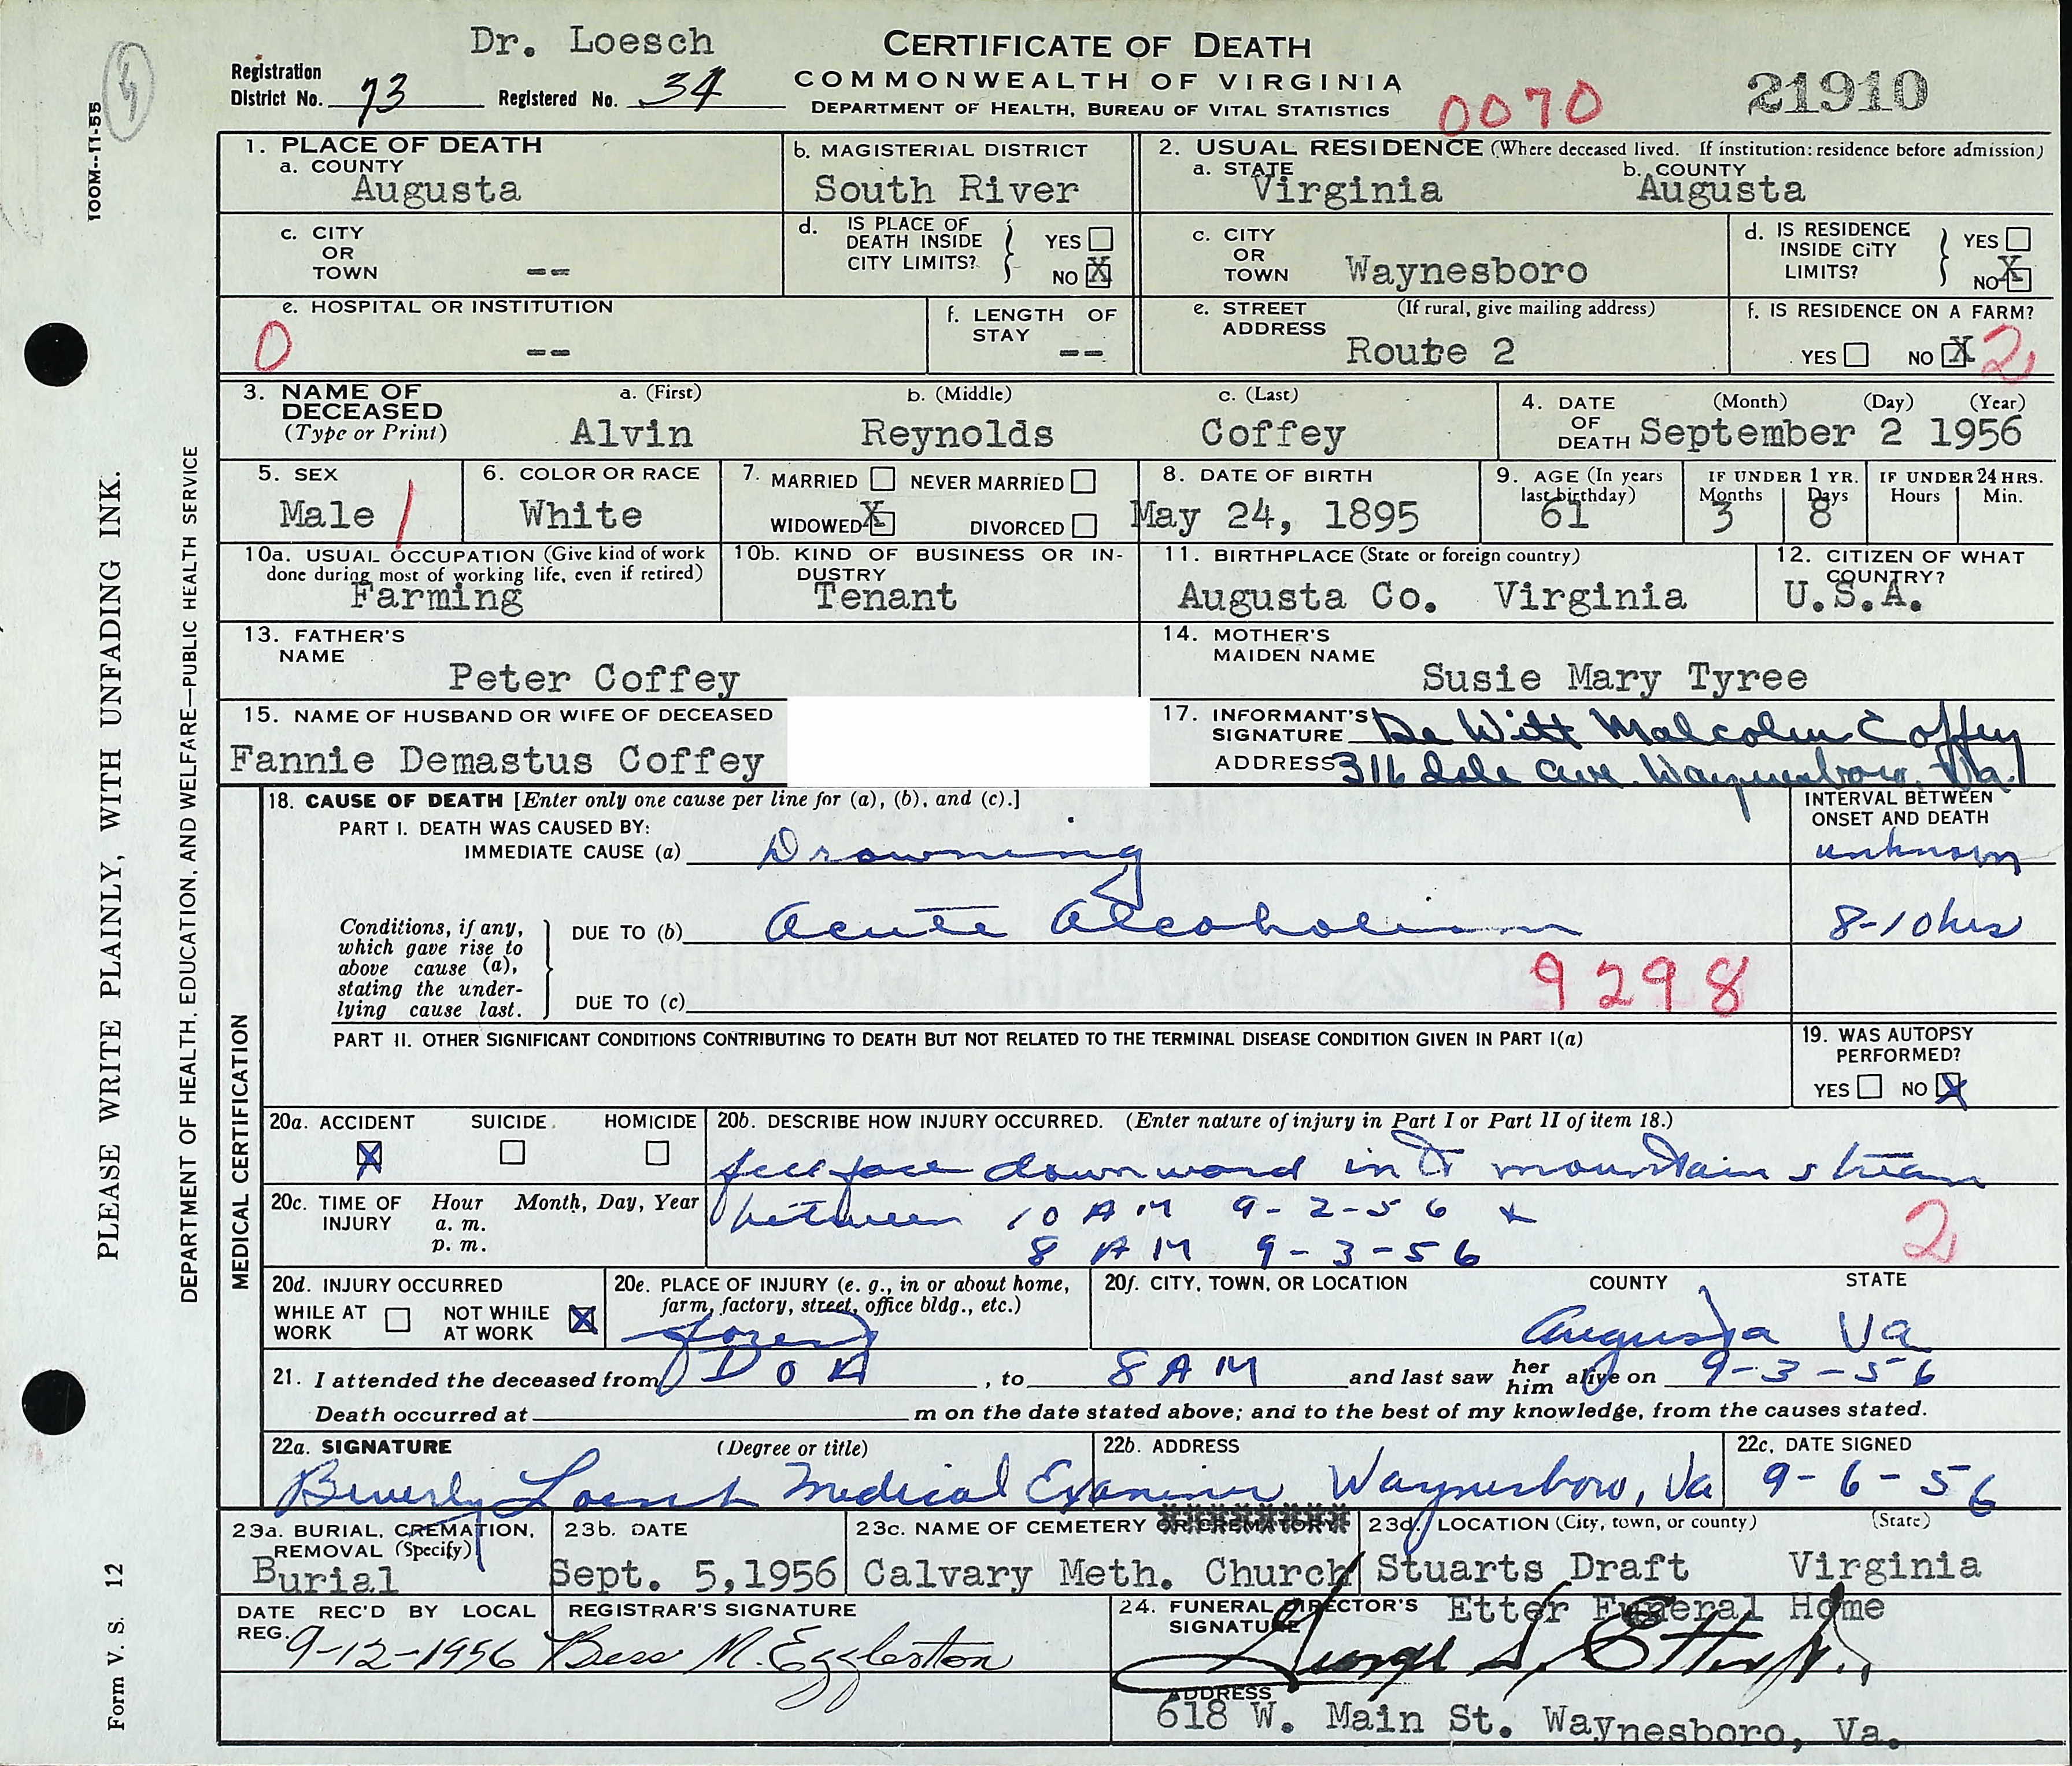 Dr. Loesch
CERTIFICATE OF DEATH
COMMONWEALTH OF VIRGINIA
DEPARTMENT OF HEALTH, BUREAU OF VITAL STATISTICS
Registration District No. 73 Registered No. 34
0070
21910
100M--11-55
PLEASE WRITE PLAINLY, WITH UNFADING INK.
DEPARTMENT OF HEALTH, EDUCATION, AND WELFARE—PUBLIC HEALTH SERVICE
Form V. S. 12
1. PLACE OF DEATH
a. COUNTY
Augusta
b. MAGISTERIAL DISTRICT
South River
2. USUAL RESIDENCE (Where deceased lived. If institution: residence before admission)
a. STATE
Virginia
b. COUNTY
Augusta
c. CITY OR TOWN --
d. IS PLACE OF DEATH INSIDE CITY LIMITS? YES NO X
c. CITY OR TOWN Waynesboro
d. IS RESIDENCE INSIDE CITY LIMITS? YES NO X
e. HOSPITAL OR INSTITUTION
0 --
f. LENGTH OF STAY --
e. STREET ADDRESS (If rural, give mailing address)
Route 2
f. IS RESIDENCE ON A FARM?
YES NO X 2
3. NAME OF DECEASED (Type or Print)
a. (First) b. (Middle) c. (Last)
Alvin Reynolds Coffey
4. DATE OF DEATH (Month) (Day) (Year)
September 2 1956
5. SEX
Male 1
6. COLOR OR RACE
White
7. MARRIED NEVER MARRIED
WIDOWED X DIVORCED
8. DATE OF BIRTH
May 24, 1895
9. AGE (In years last birthday)
61
IF UNDER 1 YR. Months Days
3 8
IF UNDER 24 HRS. Hours Min.
10a. USUAL OCCUPATION (Give kind of work done during most of working life, even if retired)
Farming
10b. KIND OF BUSINESS OR INDUSTRY
Tenant
11. BIRTHPLACE (State or foreign country)
Augusta Co. Virginia
12. CITIZEN OF WHAT COUNTRY?
U.S.A.
13. FATHER'S NAME
Peter Coffey
14. MOTHER'S MAIDEN NAME
Susie Mary Tyree
15. NAME OF HUSBAND OR WIFE OF DECEASED
Fannie Demastus Coffey
17. INFORMANT'S SIGNATURE De Witt Malcolm Coffey
ADDRESS 316 Ave. Waynesboro, Va.
MEDICAL CERTIFICATION
18. CAUSE OF DEATH [Enter only one cause per line for (a), (b), and (c).]
INTERVAL BETWEEN ONSET AND DEATH
PART I. DEATH WAS CAUSED BY:
IMMEDIATE CAUSE (a) Drowning unknown
Conditions, if any, which gave rise to above cause (a), stating the underlying cause last.
DUE TO (b) Acute Alcoholism 8-10 hrs
9298
DUE TO (c)
PART II. OTHER SIGNIFICANT CONDITIONS CONTRIBUTING TO DEATH BUT NOT RELATED TO THE TERMINAL DISEASE CONDITION GIVEN IN PART I(a)
19. WAS AUTOPSY PERFORMED?
YES NO X
20a. ACCIDENT SUICIDE HOMICIDE
X
20b. DESCRIBE HOW INJURY OCCURRED. (Enter nature of injury in Part I or Part II of item 18.)
fell face downward into mountain stream
20c. TIME OF INJURY Hour Month, Day, Year
a. m.
p. m.
between 10 AM 9-2-56 &
8 AM 9-3-56
2
20d. INJURY OCCURRED
WHILE AT WORK NOT WHILE AT WORK X
20e. PLACE OF INJURY (e. g., in or about home, farm, factory, street, office bldg., etc.)
20f. CITY, TOWN, OR LOCATION COUNTY STATE
Augusta Va
21. I attended the deceased from D O A, to 8 AM and last saw her him alive on 9-3-56
Death occurred at m on the date stated above; and to the best of my knowledge, from the causes stated.
22a. SIGNATURE (Degree or title)
Beverly Loesch Medical Examiner
22b. ADDRESS
Waynesboro, Va
22c. DATE SIGNED
9-6-56
23a. BURIAL, CREMATION, REMOVAL (Specify)
Burial
23b. DATE
Sept. 5, 1956
23c. NAME OF CEMETERY OR CREMATORY
Calvary Meth. Church
23d. LOCATION (City, town, or county) (State)
Stuarts Draft Virginia
DATE REC'D BY LOCAL REG.
9-12-1956
REGISTRAR'S SIGNATURE
Bess M. Eggleston
24. FUNERAL DIRECTOR'S SIGNATURE
Etter Funeral Home
George S. Etter Jr.,
ADDRESS
618 W. Main St. Waynesboro, Va.